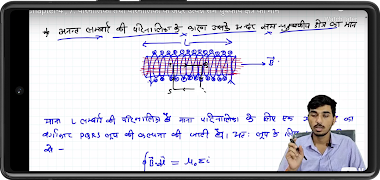 अनन्त लम्बाई की परिनालिका के कारण उसके अन्दर चुम्बकीय क्षेत्र का मान
L
B
S
माना L लम्बाई की परिनालिका है माना परिनालिका के लिए एक
PQRS लूप की कल्पना की जाती है। अतः लूप के लिए
से -
∮B.dl = μ₀ Σi